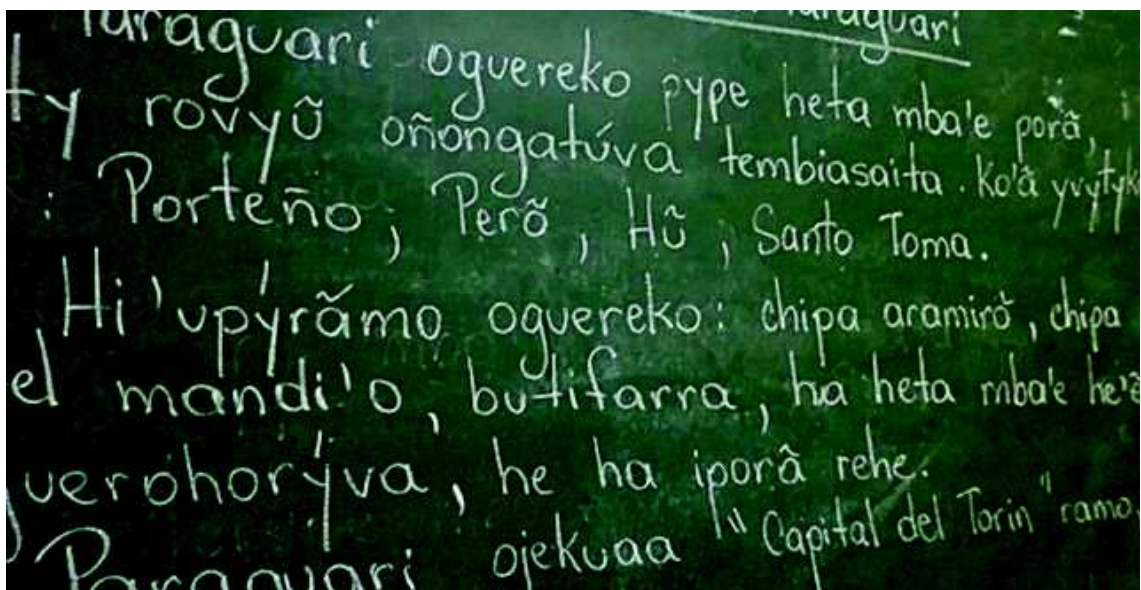 Paraguari
Paraguari oguereko pype heta mba'e porã,
ty rovyũ oñongatúva tembiasaita. Ko'ã yvytyk
: Porteño, Perõ, Hũ, Santo Toma.
Hi'upýrãmo oguereko: chipa aramirõ, chipa
el mandi'o, butifarra, ha heta mba'e he'ẽ
guerohorýva, he ha iporã rehe.
Paraguari ojekuaa "Capital del Torin" ramo,